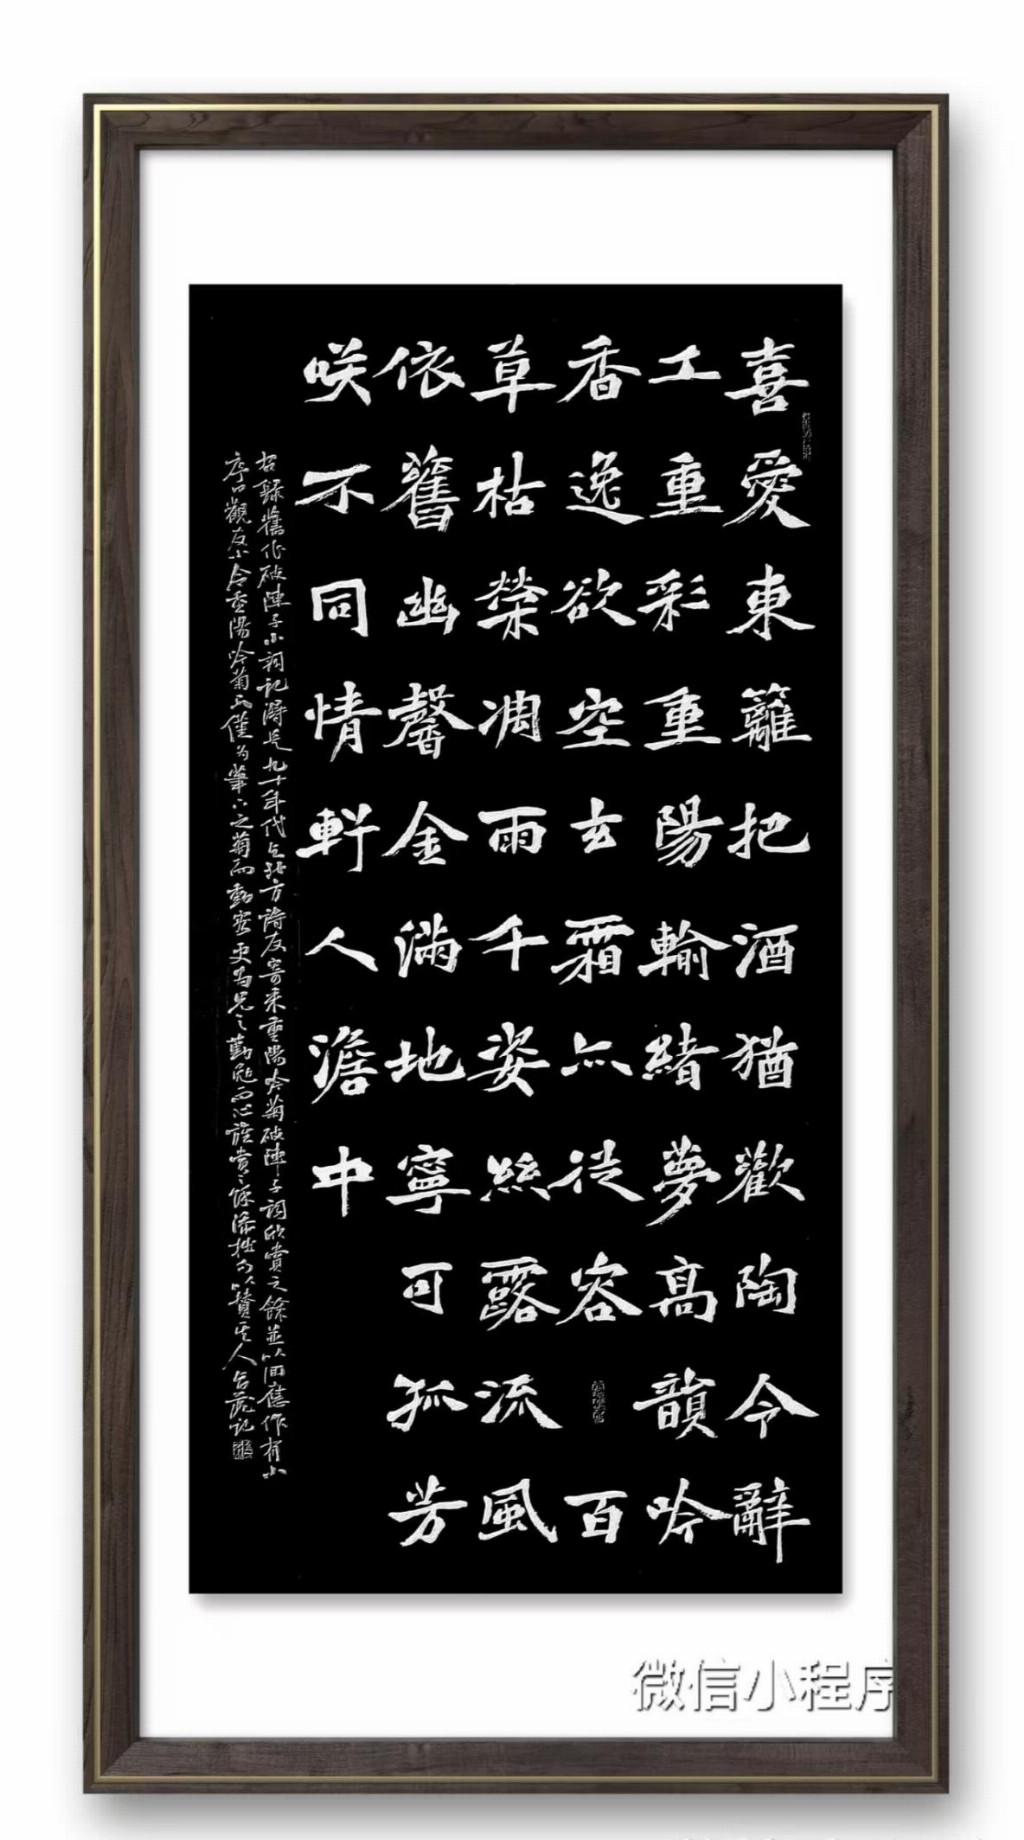 喜愛東籬把酒猶歡陶令辭
工重彩重陽輸緒夢高韻吟
香逸欲空玄霜六徙容百
草枯榮凋雨千姿絲露流風
依舊幽馨金滿地寧可孤芳
咲不同情軒人澹中
右錄舊作破陣子小詞記得是九十年代之北方詩友寄來重陽吟菊破陣子詞欣賞之餘並以酒應作有小
序口觀友小令重陽吟菊不僅為筆下之菊而動容更為兄之勤勉而心誰賞餘添拙句以贊其人
微信小程序